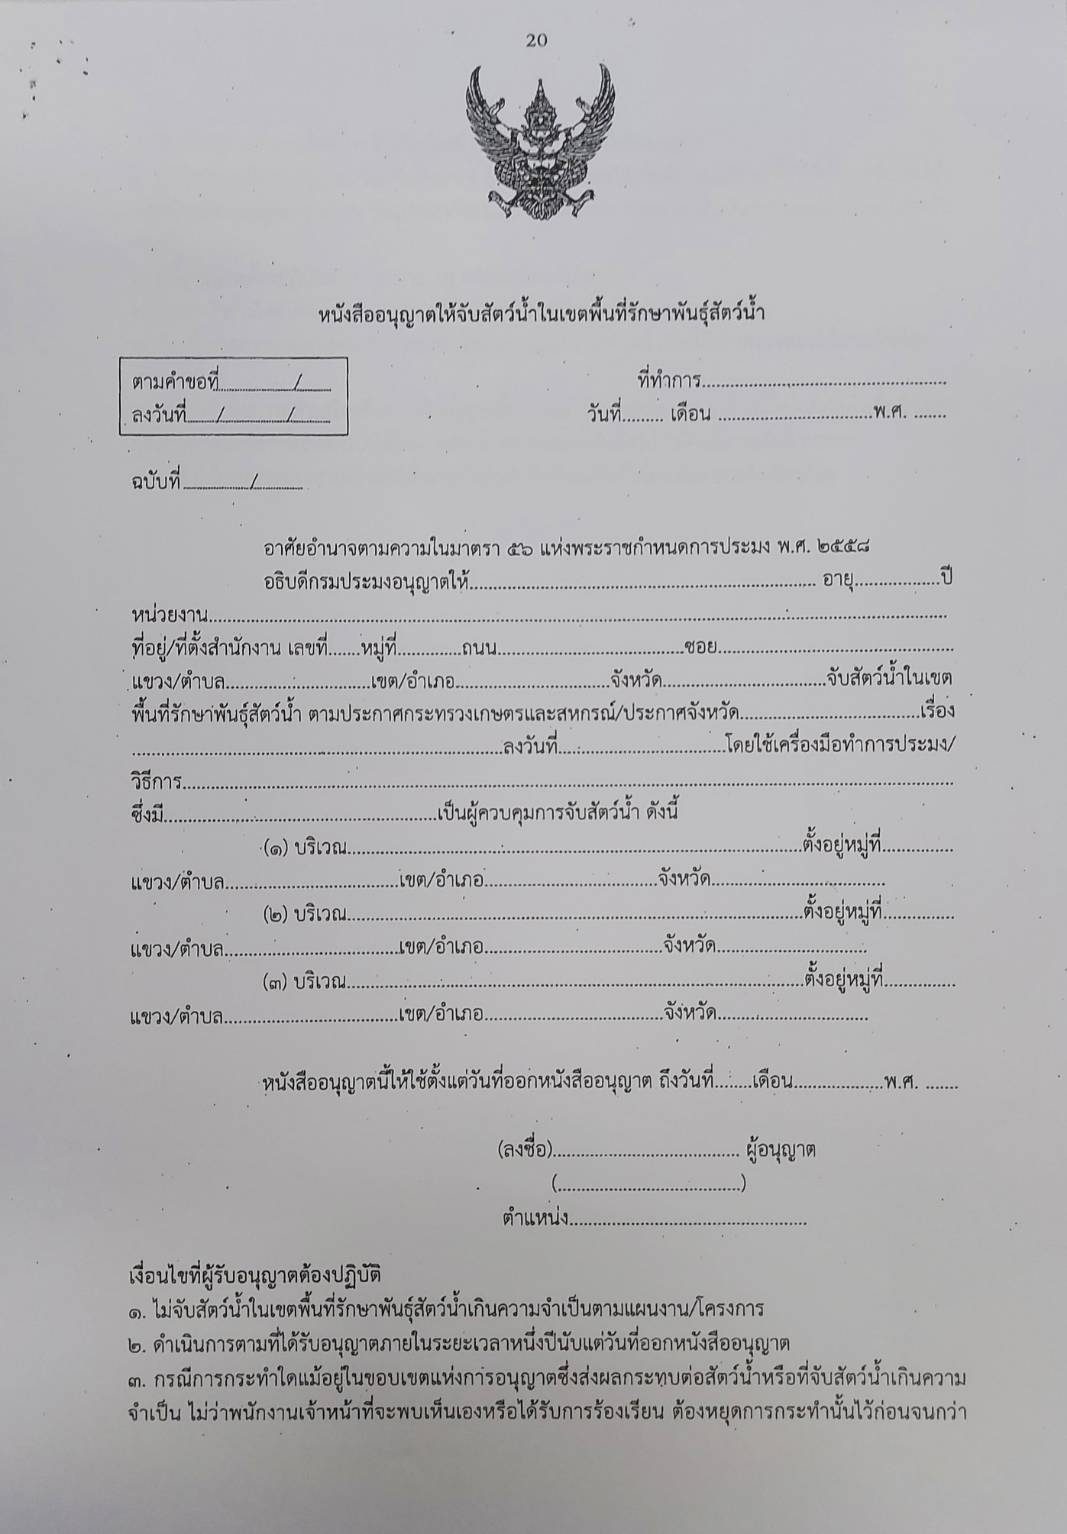 20
หนังสืออนุญาตให้จับสัตว์น้ำในเขตพื้นที่รักษาพันธุ์สัตว์น้ำ
ตามคำขอที่................/........
ลงวันที่......./............../.........
ที่ทำการ....................................................
วันที่......... เดือน .................................พ.ศ. .......
ฉบับที่................/...........
อาศัยอำนาจตามความในมาตรา ๕๖ แห่งพระราชกำหนดการประมง พ.ศ. ๒๕๕๘
อธิบดีกรมประมงอนุญาตให้.......................................................................... อายุ..................ปี
หน่วยงาน..............................................................................................................................
ที่อยู่/ที่ตั้งสำนักงาน เลขที่.......หมู่ที่.............ถนน........................................ซอย..................................................
แขวง/ตำบล...............................เขต/อำเภอ.................................จังหวัด...................................จับสัตว์น้ำในเขต
พื้นที่รักษาพันธุ์สัตว์น้ำ ตามประกาศกระทรวงเกษตรและสหกรณ์/ประกาศจังหวัด......................................เรื่อง
...............................................................................ลงวันที่...................................โดยใช้เครื่องมือทำการประมง/
วิธีการ..............................................................................................................................
ซึ่งมี..........................................................เป็นผู้ควบคุมการจับสัตว์น้ำ ดังนี้
(๑) บริเวณ.................................................................................................ตั้งอยู่หมู่ที่...............
แขวง/ตำบล.....................................เขต/อำเภอ.....................................จังหวัด.....................................
(๒) บริเวณ.................................................................................................ตั้งอยู่หมู่ที่...............
แขวง/ตำบล.....................................เขต/อำเภอ......................................จังหวัด................................
(๓) บริเวณ.................................................................................................ตั้งอยู่หมู่ที่...............
แขวง/ตำบล.....................................เขต/อำเภอ......................................จังหวัด................................
หนังสืออนุญาตนี้ให้ใช้ตั้งแต่วันที่ออกหนังสืออนุญาต ถึงวันที่........เดือน...................พ.ศ. .......
(ลงชื่อ)........................................ ผู้อนุญาต
(.......................................)
ตำแหน่ง...................................................
เงื่อนไขที่ผู้รับอนุญาตต้องปฏิบัติ
๑. ไม่จับสัตว์น้ำในเขตพื้นที่รักษาพันธุ์สัตว์น้ำเกินความจำเป็นตามแผนงาน/โครงการ
๒. ดำเนินการตามที่ได้รับอนุญาตภายในระยะเวลาหนึ่งปีนับแต่วันที่ออกหนังสืออนุญาต
๓. กรณีการกระทำใดแม้อยู่ในขอบเขตแห่งการอนุญาตซึ่งส่งผลกระทบต่อสัตว์น้ำหรือที่จับสัตว์น้ำเกินความ
จำเป็น ไม่ว่าพนักงานเจ้าหน้าที่จะพบเห็นเองหรือได้รับการร้องเรียน ต้องหยุดการกระทำนั้นไว้ก่อนจนกว่า